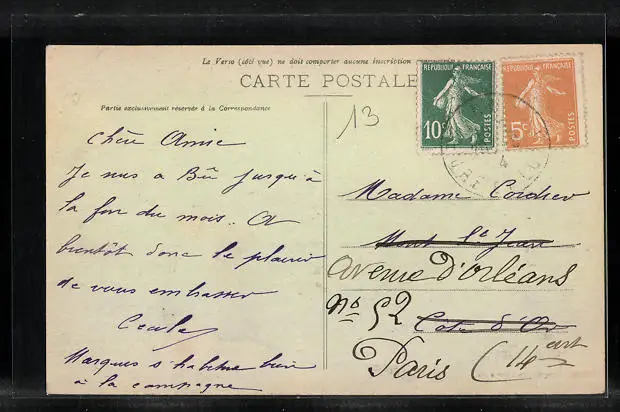 Le Verso (côté vue) ne doit comporter aucune inscription
CARTE POSTALE
Partie exclusivement réservée à la Correspondance
13
REPUBLIQUE FRANÇAISE
10c
POSTES
REPUBLIQUE FRANÇAISE
5c
POSTES
Chère Amie
Je suis a Bû jusqu'à
la fin du mois. A
bientôt donc le plaisir
de vous embrasser
Cecile
Marques s'habitue bien
à la campagne
Madame Cordier
Mont St Jean
avenue d'Orléans
No 52
Côte d'Or
Paris (14 art